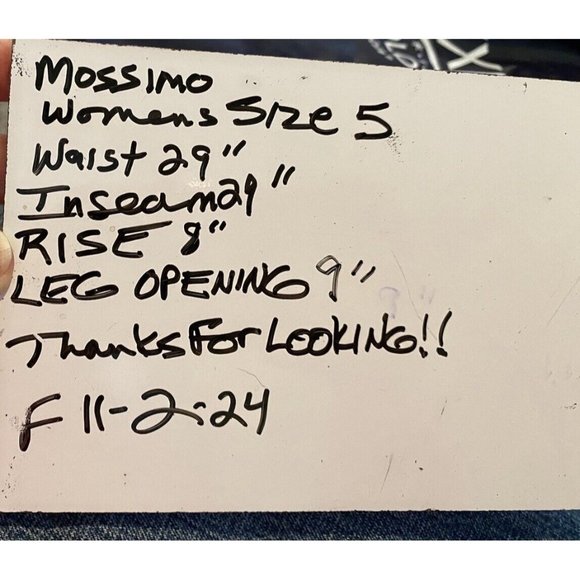 Mossimo
Womens Size 5
Waist 29"
Inseam 29"
RISE 8"
LEG OPENING 9"
Thanks For LOOKING!!
F 11-2-24